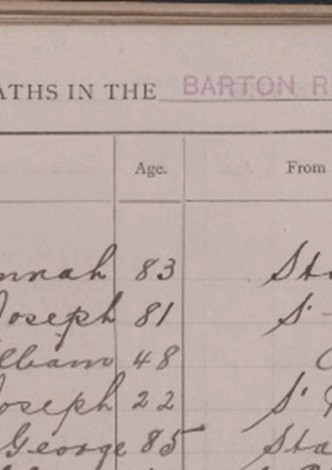 ATHS IN THE BARTON R
Age. From
nnah 83 Sta
Joseph 81 S'
lliam 48
oseph 22 S'
George 85 Sta